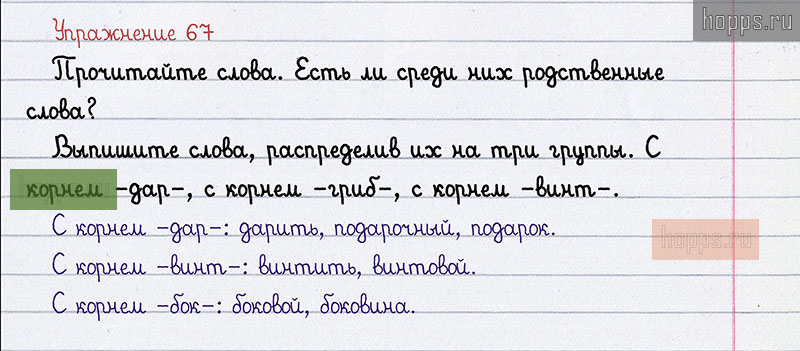 hopps.ru
Упражнение 67
Прочитайте слова. Есть ли среди них родственные
слова?
Выпишите слова, распределив их на три группы. С
корнем -дар-, с корнем -гриб-, с корнем -винт-.
С корнем -дар-: дарить, подарочный, подарок.
hopps.ru
С корнем -винт-: винтить, винтовой.
С корнем -бок-: боковой, боковина.